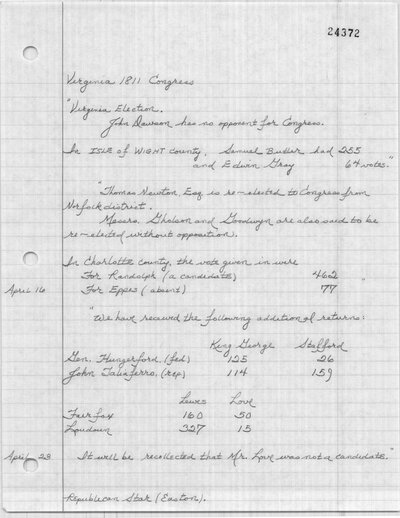 24372
Virginia 1811 Congress
"Virginia Election.
John Dawson has no opponent for Congress.
In ISLE of WIGHT county, Samuel Butler had 255
and Edwin Gray 64 votes."
"Thomas Newton Esq is re-elected to Congress from
Norfolk district.
Messrs. Gholson and Goodwyn are also said to be
re-elected without opposition.
In Charlotte county, the vote given in were
For Randolph (a candidate) 462
April 16 For Eppes (absent) 77 "
"We have received the following additional returns:
King George Stafford
Gen. Hungerford, (fed) 125 26
John Taliaferro, (rep) 114 159
Lewis Love
Fairfax 160 50
Loudoun 327 15
April 23 It will be recollected that Mr. Love was not a candidate."
Republican Star (Easton).